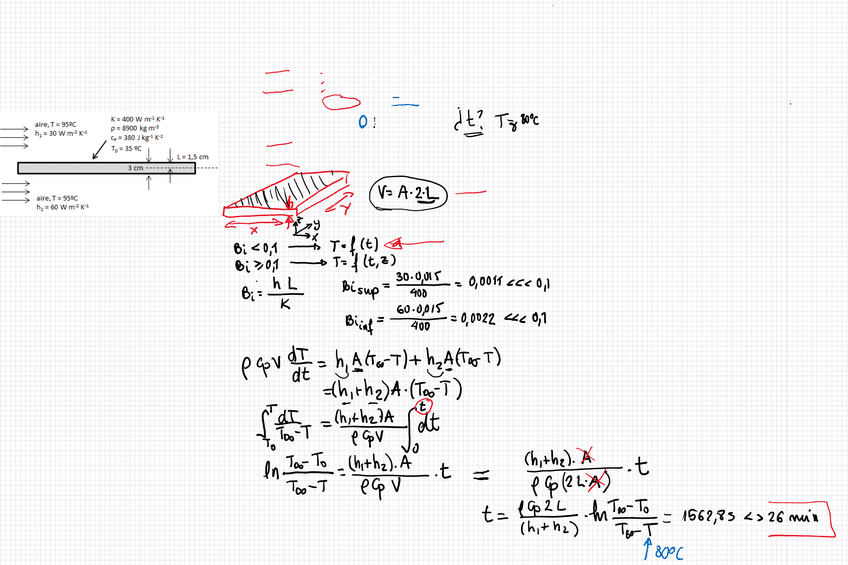 0:
¿t? T=80ºC
aire, T = 95ºC
h₁ = 30 W m⁻² K⁻¹
K = 400 W m⁻¹ K⁻¹
ρ = 8900 kg m⁻³
cₚ = 380 J kg⁻¹ K⁻¹
T₀ = 35 ºC
L = 1,5 cm
3 cm
aire, T = 95ºC
h₂ = 60 W m⁻² K⁻¹
V = A·2·L
x
y
z
y
x
Bi < 0,1 → T = f(t)
Bi ≥ 0,1 → T = f(t,z)
Bi = h L / K
Bi sup = 30·0,015 / 400 = 0,0011 <<< 0,1
Bi inf = 60·0,015 / 400 = 0,0022 <<< 0,1
ρ Cp V dT/dt = h₁ A (T∞-T) + h₂ A (T∞-T)
= (h₁+h₂) A·(T∞-T)
∫_T₀^T dT / T∞-T = (h₁+h₂) A / ρ Cp V ∫_0^t dt
ln T∞-T₀ / T∞-T = (h₁+h₂)·A / ρ Cp V · t = (h₁+h₂)·A / ρ Cp (2 L·A) · t
t = ρ Cp 2 L / (h₁+h₂) · ln T∞-T₀ / T∞-T = 1562,8s <> 26 min
80ºC